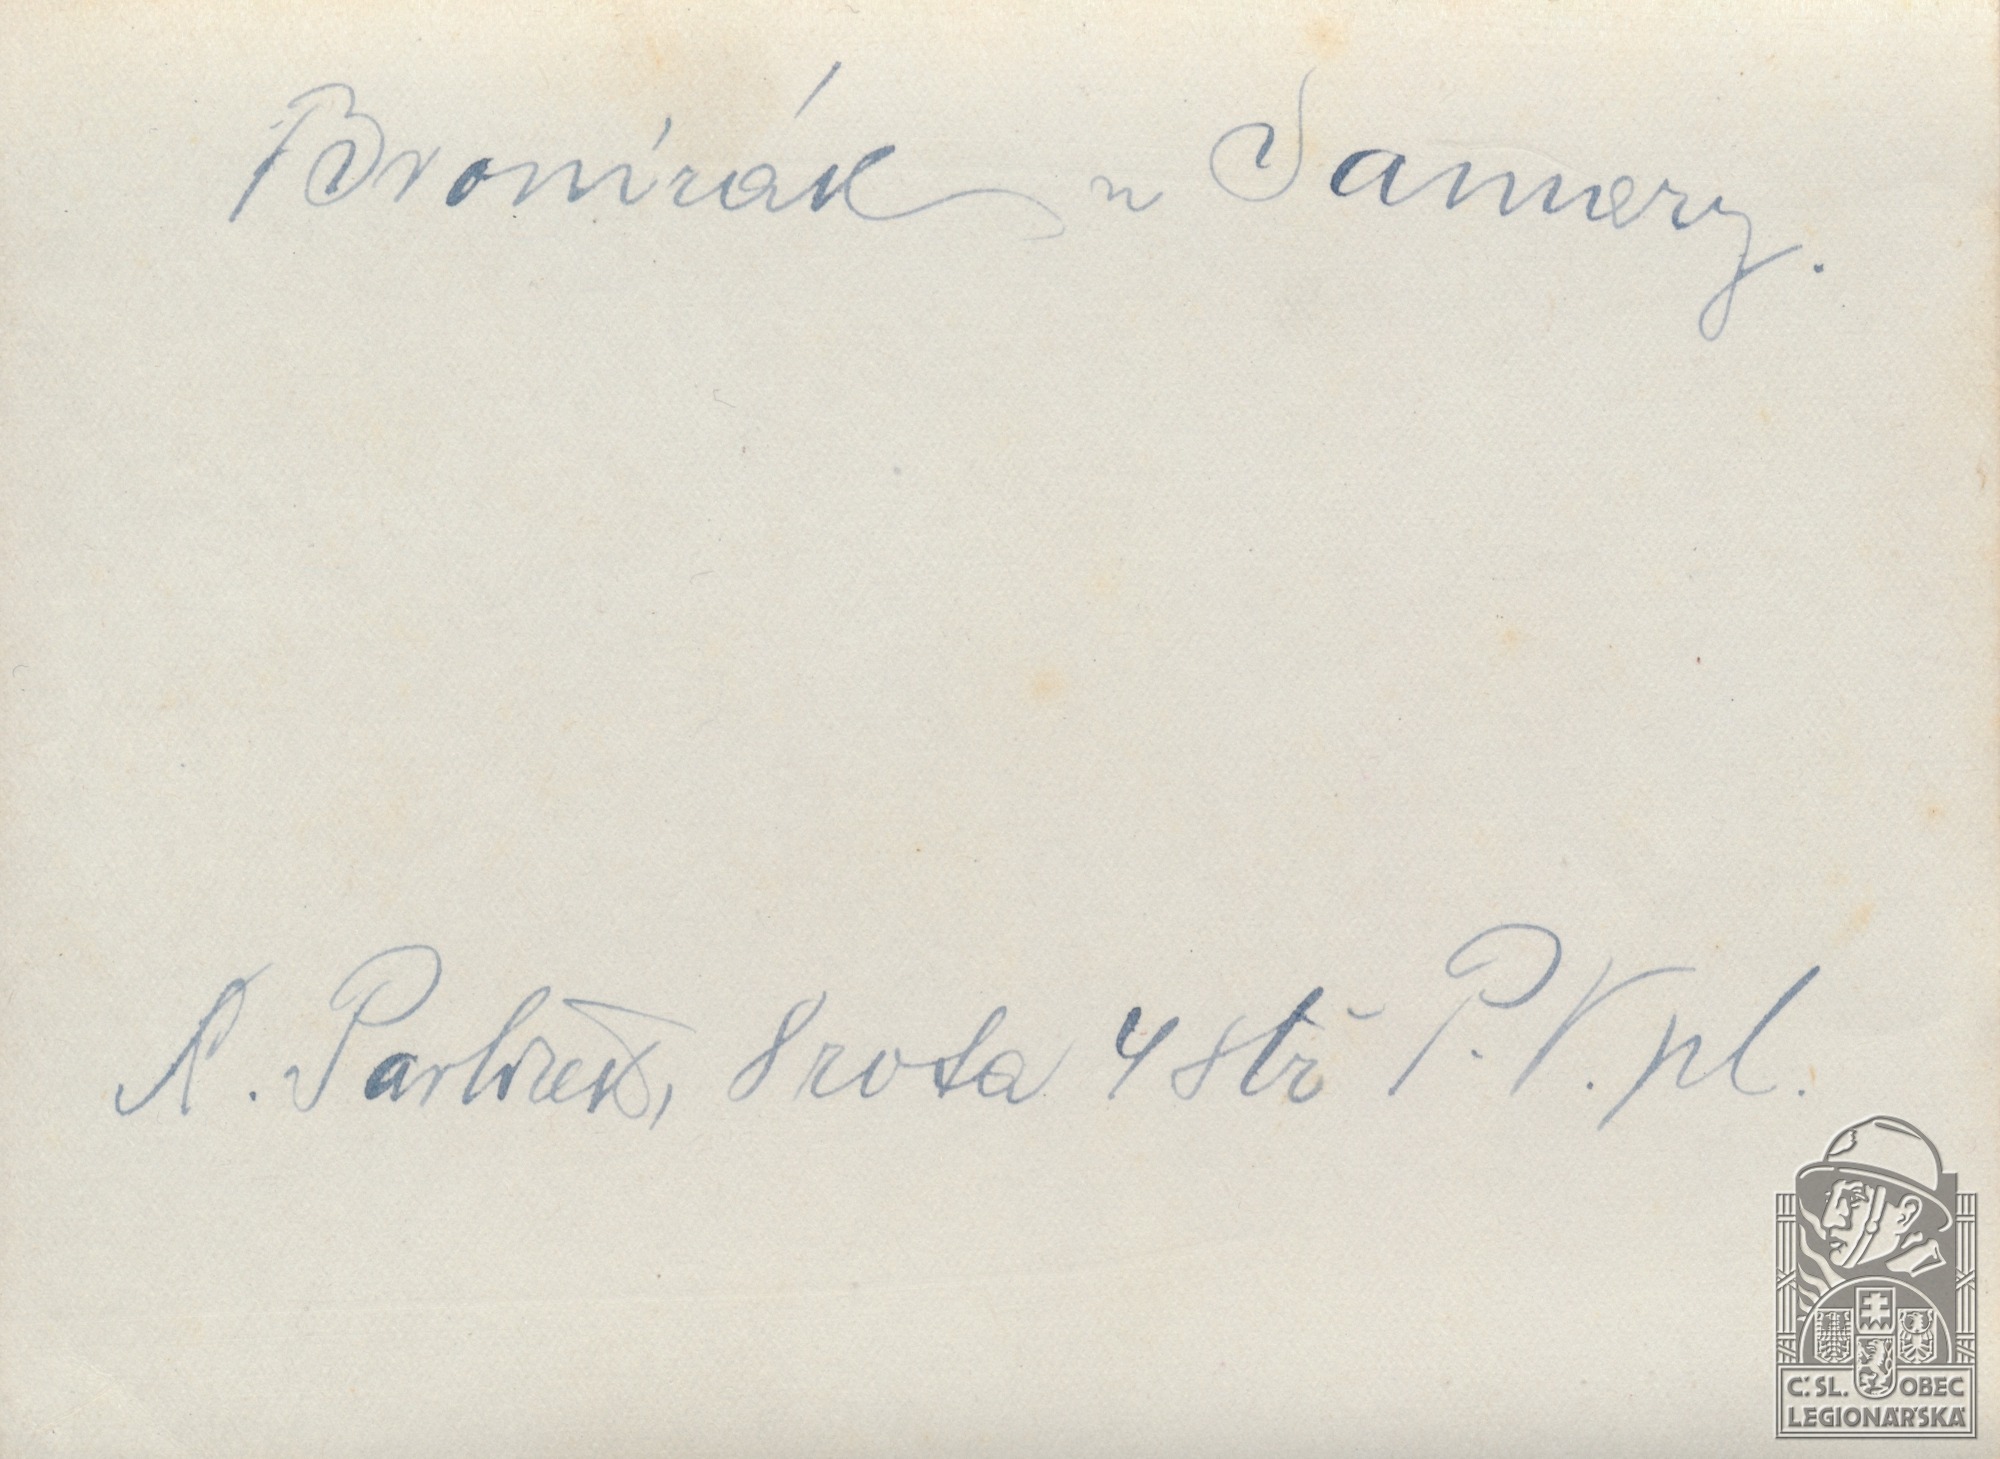 Bronírák u Samary.
A. Pavlíček, 8 rota 4 stř P. V. pl.
Č. SL. OBEC
LEGIONÁŘSKÁ